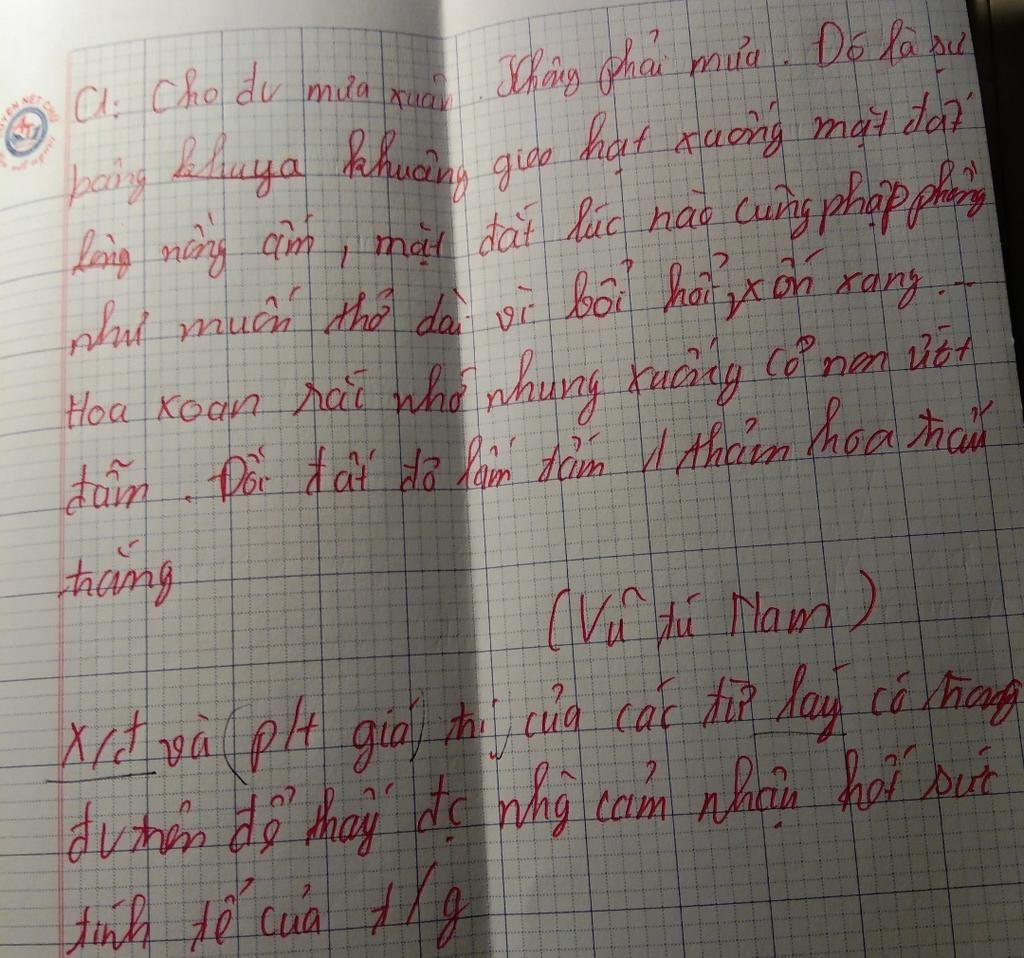 C1: Cho đv mưa xuân. Không phải mưa. Đó là sự
bâng khuâng gieo hạt xuống mặt đất
nồng ấm, mặt đất lúc nào cũng phập phồng
như muốn thở dài vì bổi hổi, xốn xang. -
Hoa xoan rắc nhớ nhung xuống cỏ non ướt
đẫm. Đồi đất đỏ lấm tấm 1 thảm hoa trẩu
trắng
(Vũ Tú Nam)
X/đ và (p/t giá) trị của các từ láy có trong
đv trên để thấy đc nhg cảm nhận hết sức
tinh tế của t/g